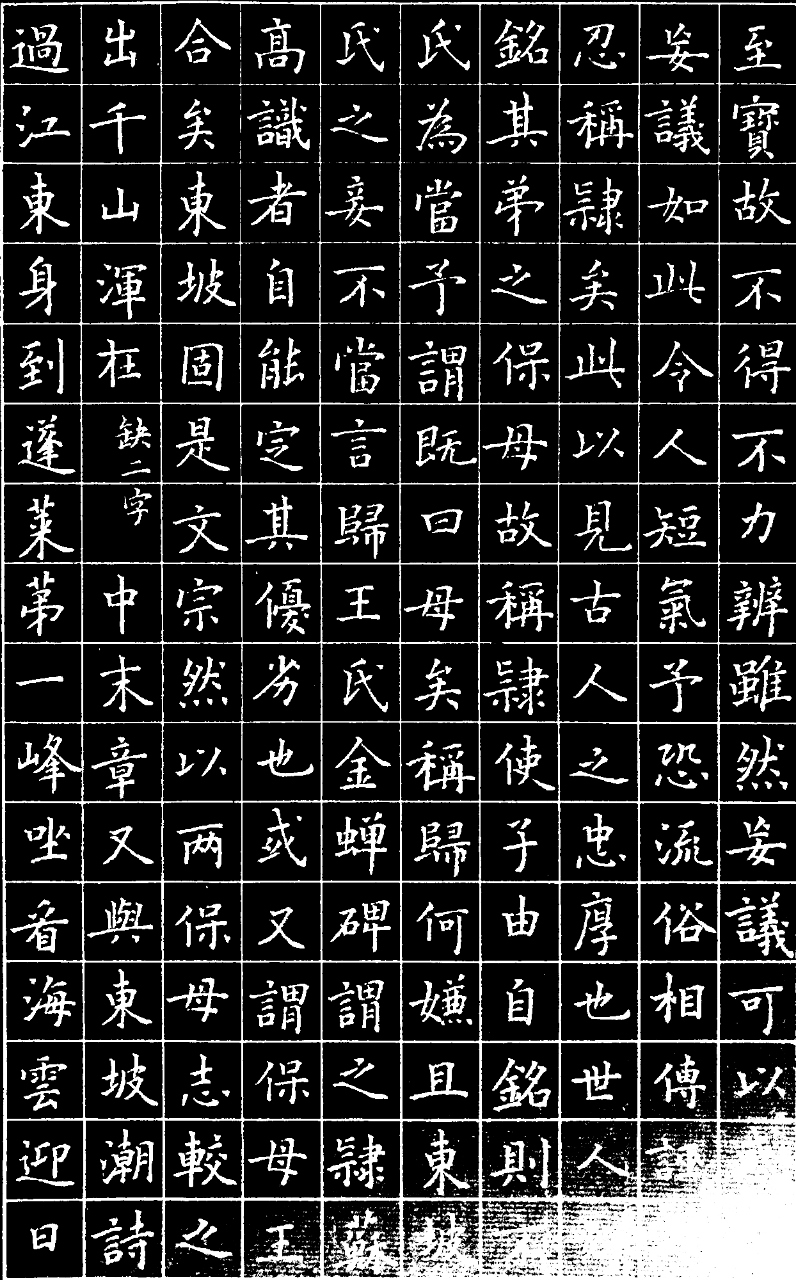 至寶故不得不力辨雖然妄議可以
妄議如此令人短氣予恐流俗相傳
忍稱隸矣此以見古人之忠厚也世人
銘其弟之保母故稱隸使子由自銘則不
氏為當予謂既曰母矣稱歸何嫌且東坡
氏之妾不當言歸王氏金蟬碑謂之隸蘇
高識者自能定其優劣也或又謂保母王
合矣東坡固是文宗然以两保母志較之
出千山渾在缺二字中末章又與東坡潮詩
過江東身到蓬萊第一峰坐看海雲迎日